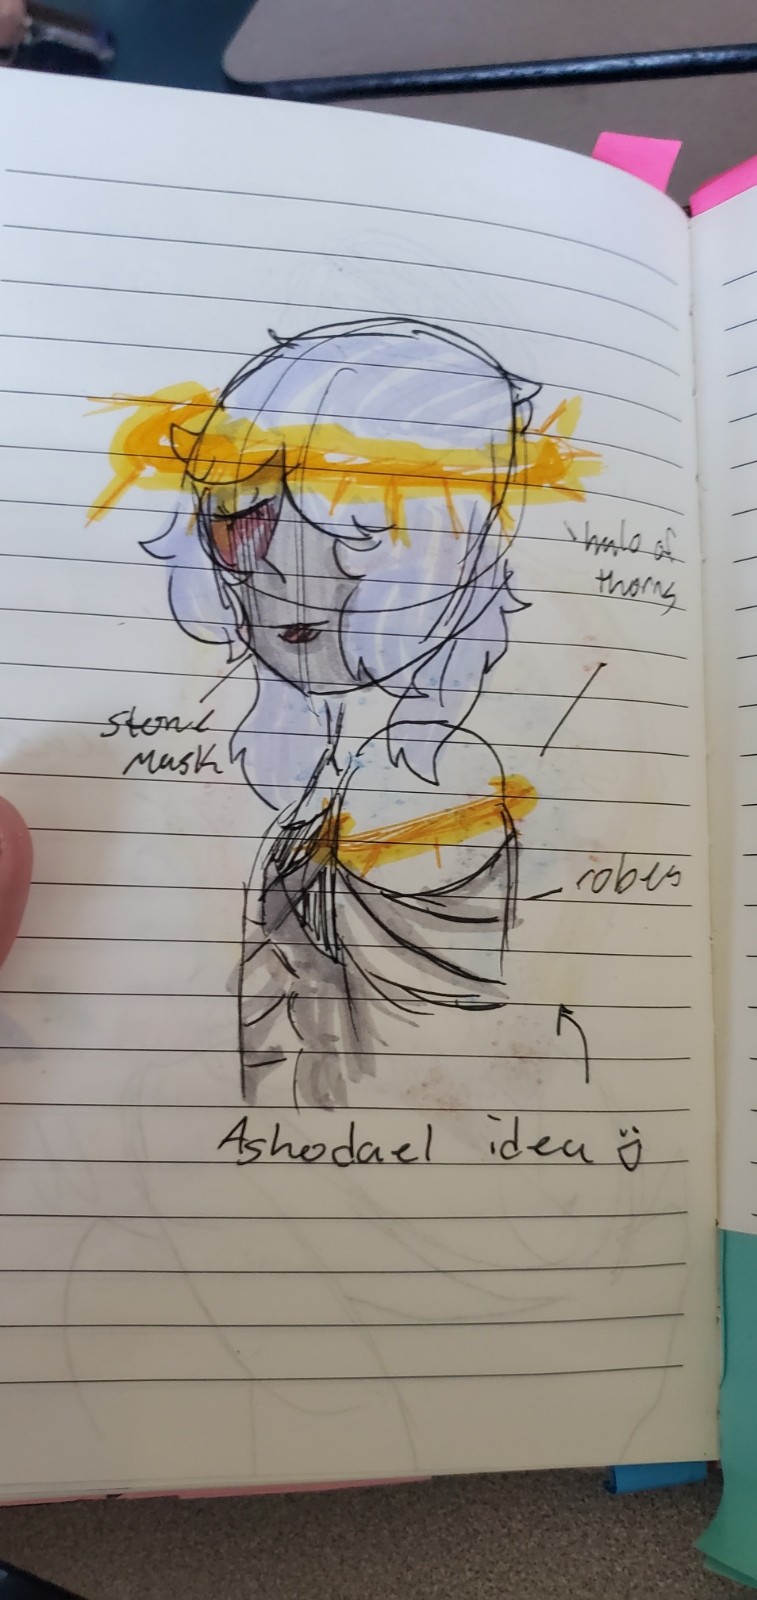 halo of
thorns
stone
mask
robes
Ashodael idea